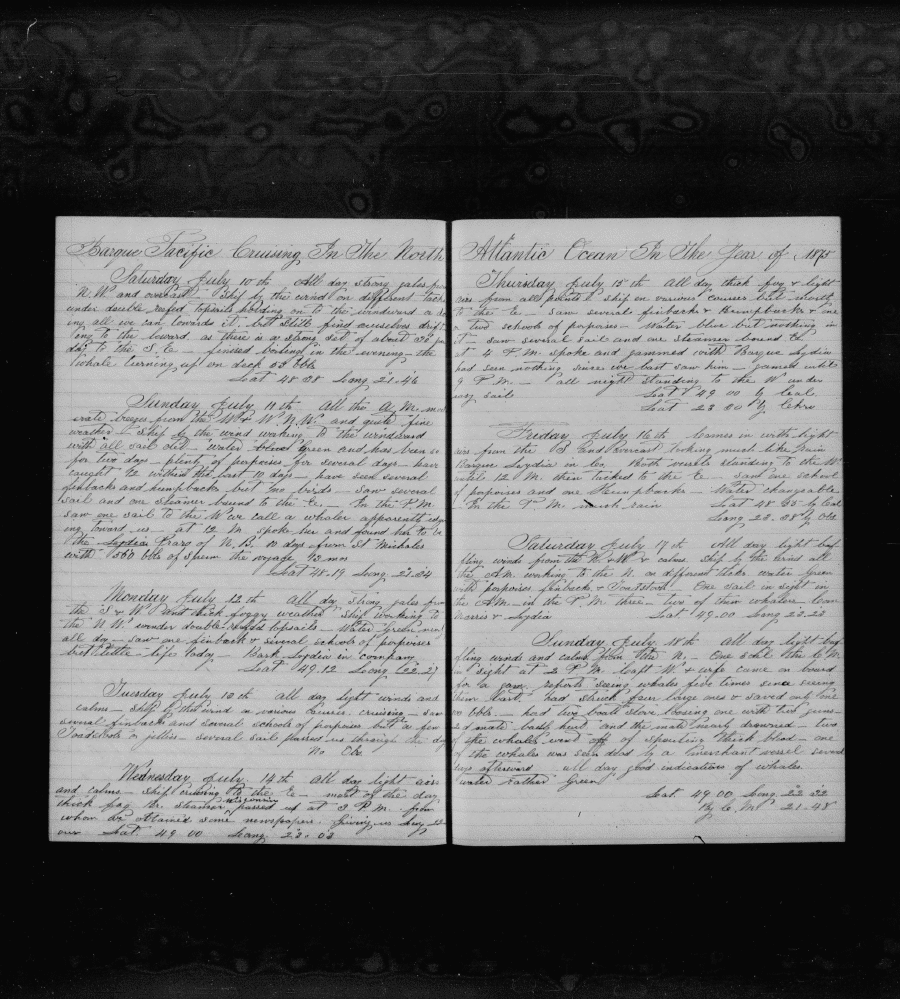 Barque Pacific Cruising In The North
Saturday July 10th All day strong gales from
N.W. and overcast. Ship by the wind on different tacks
under double reefed topsails holding on to the windward a do
ing all we can towards it. but still find ourselves drift
ing to the leward as there is a strong set of about 30 pr
day to the S.E. finished boiling in the evening - the
Whale turning up on deck 53 bbls
Lat 48 38 Long 21.46
Sunday July 11th All the A.M. mod
erate breezes from the W & W.N.W. and quite fine
weather Ship by the wind working to the windward
with all sail out - water blue green and has been so
for two days - plenty of porpoises for several days - have
caught 12 within the last 10 days - have seen several
finbacks and humpbacks but no birds - Saw several
sail and one steamer bound to the E. - In the P.M.
saw one sail to the W we call a whaler apparently edg
ing toward us - at 12 M. spoke her and found her to be
the Lydia of N.B. 10 days from St Michaels
with 560 bbls of sperm the voyage 43 mos
Lat 48.19 Long 21.34
Monday July 12th All day strong gales from
the S & W and thick foggy weather Ship working to
the N.W. under double reefed topsails - Water Green
all day - saw one finback & several schools of porpoises
but little life today - Bark Lydia in company
Lat 49.12 Long 22.27
Tuesday July 13th All day light winds and
calms - Ship by the wind on various courses, cruising - saw
several finbacks and several schools of porpoises but a few
or jellies - several sail passed us through the day
No Obs
Wednesday July 14th All day light airs
and calms - Ship cruising to the E - most of the day
thick fog Br. steamer passed up at 3 P.M. from
whom we obtained some newspapers. Giving us Long 22
Lat 49 00 Long 23.03
Atlantic Ocean In The Year of 1875
Thursday July 15th All day thick fog & light
airs from all points Ship on various courses but mostly
to the E - saw several finbacks & Humpbacks & one
or two schools of porpoises - Water blue but nothing in
it - saw several sail and one steamer bound E
at 4 P.M. spoke and gammed with Barque Lydia
had seen nothing since we last saw him - gammed until
9 P.M. - all night standing to the W under
easy sail Lat 49 00 by Cal
Lat 23 20 by Chro
Friday July 16th Comes in with light
airs from the S and overcast looking much like rain
Barque Lydia in Co. Both vessels standing to the W
until 12 M. then tacked to the E - Saw one school
of porpoises and one Humpback - Water changeable
In the P.M. much rain Lat 48 55 by Cal
Long 23.38 by Obs
Saturday July 17th All day light baf
fling winds from the N. & W & calms. Ship by the wind all
the A.M. working to the N. on different tacks water Green
with porpoises finbacks & One sail in sight in
the A.M. in the P.M. three - two of them whalers - Coml
Morris & Lydia Lat. 49.00 Long 23.23
Sunday July 18th All day light baf
fling winds and calms from the N. - One sail the C.M.
in sight at 2 P.M. Capt W & wife came on board
for a gam. reports seeing whales five times since seeing
them last. had struck four large ones & saved only one
bbls - had two boats stove loosing one with two guns -
2d mate badly hurt and the mate nearly drowned - two
of the whales went off spouting thick blood - one
of the whales was seen dead by a merchant vessel several
days afterward - all day good indications of whales
water rather Green
Lat. 49 00 Long 22 32
By C M 21-48